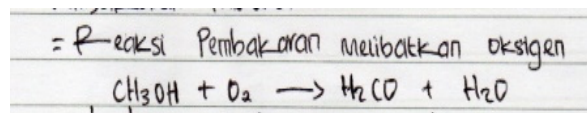 = Reaksi Pembakaran melibatkan oksigen
CH3OH + O2 → H2CO + H2O